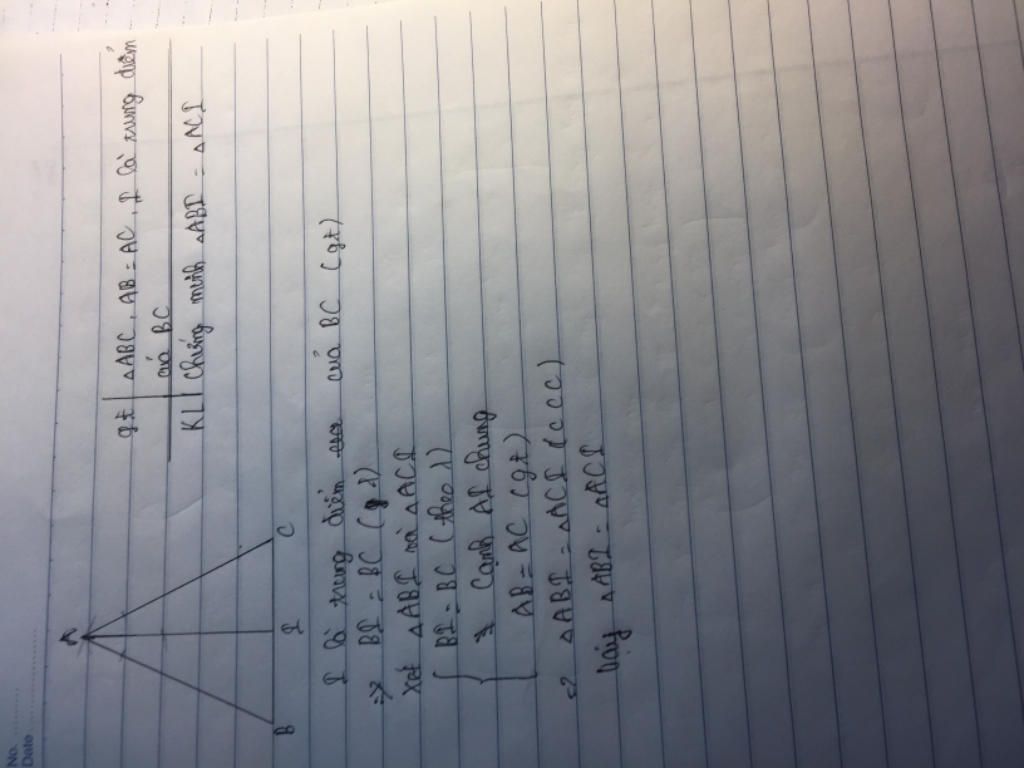 No.
Date
A
B
I
C
gt | △ABC, AB = AC, I là trung điểm
của BC
KL | chứng minh △ABI = △ACI
I là trung điểm của BC (gt)
=> BI = BC (1)
Xét △ABI và △ACI
BI = BC (theo 1)
Cạnh AI chung
AB = AC (gt)
=> △ABI = △ACI (c c c)
Vậy △ABI = △ACI